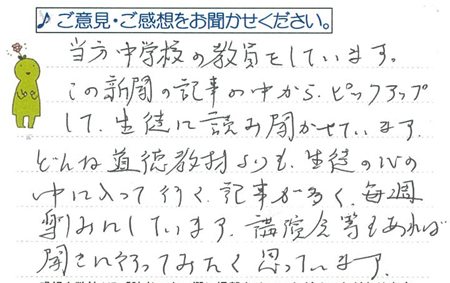 ♪ご意見・ご感想をお聞かせください。
当方中学校の教員をしています。
この新聞の記事の中から、ピックアップ
して、生徒に読み聞かせています。
どんな道徳教材よりも、生徒の心の
中に入って行く、記事が多く、毎週
楽しみにしています。講演会等もあれば
聞きに行ってみたく思っています。